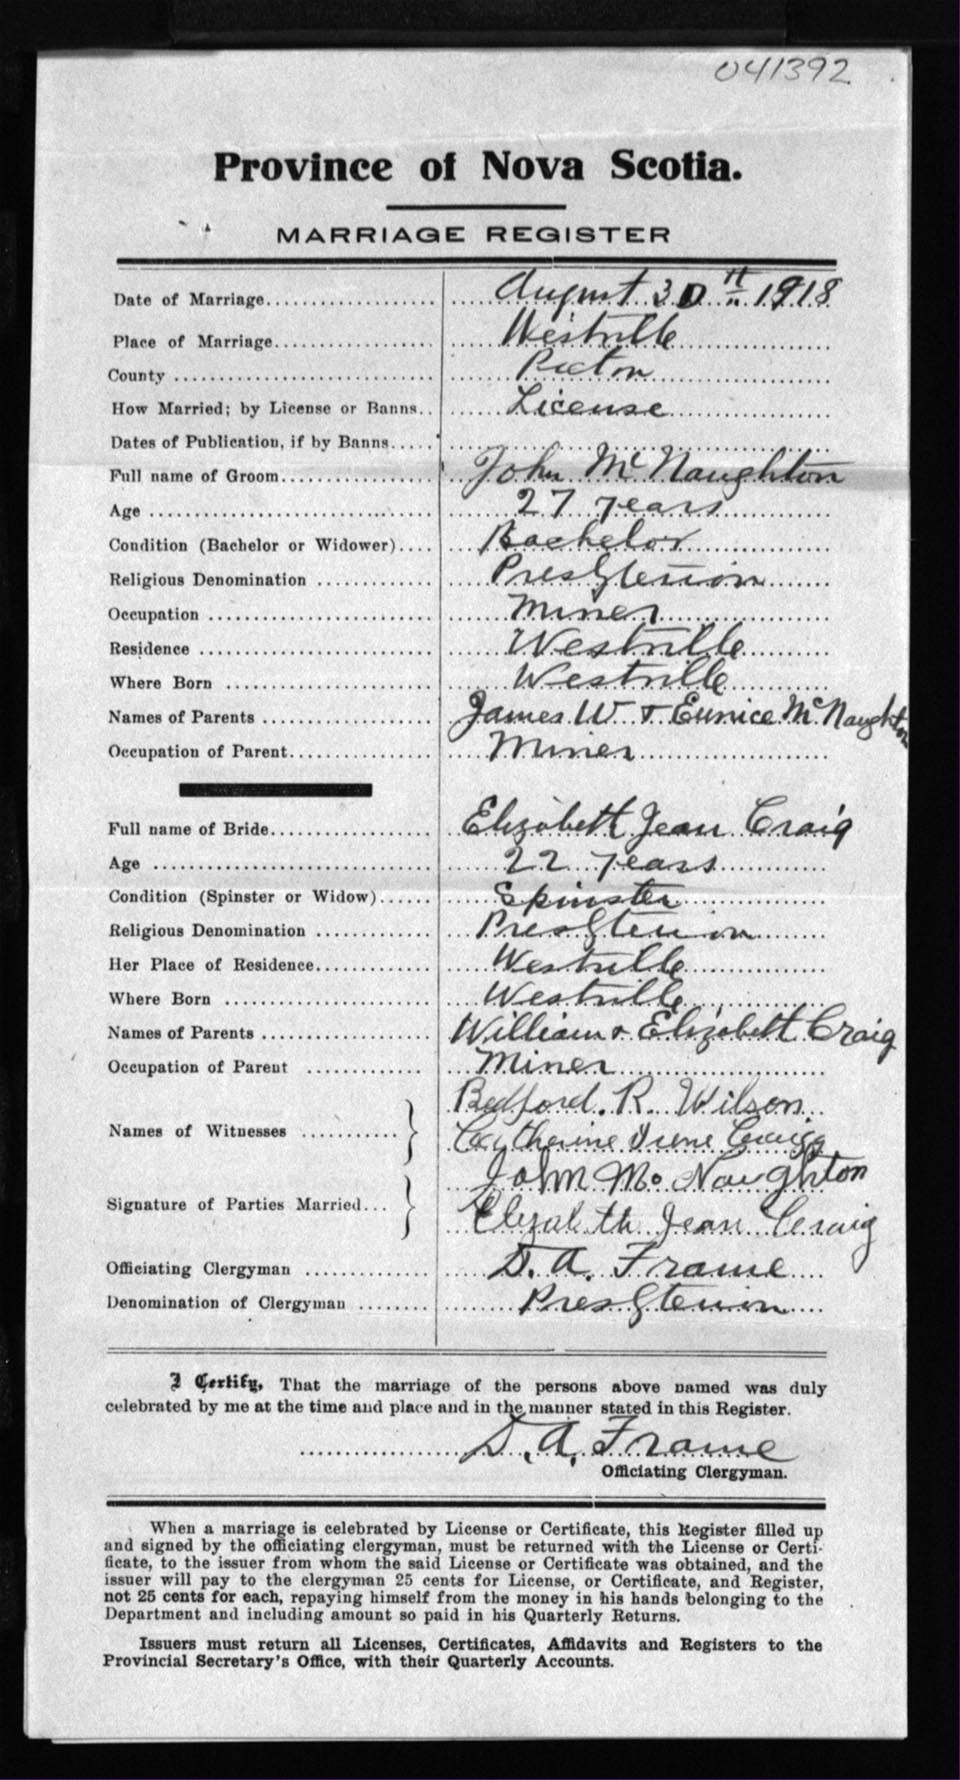 041392
Province of Nova Scotia.
MARRIAGE REGISTER
Date of Marriage.................. August 30th 1918
Place of Marriage................. Westville
County ............................ Pictou
How Married; by License or Banns.. License
Dates of Publication, if by Banns.....
Full name of Groom................. John McNaughton
Age ............................... 27 years
Condition (Bachelor or Widower).... Bachelor
Religious Denomination ............ Presbterion
Occupation ........................ Miner
Residence ......................... Westville
Where Born ........................ Westville
Names of Parents .................. James W & Eunice McNaughton
Occupation of Parent............... Miner
Full name of Bride................. Elizabett Jean Craig
Age ............................... 22 years
Condition (Spinster or Widow)...... Spinster
Religious Denomination ............ Presbterion
Her Place of Residence............. Westville
Where Born ........................ Westville
Names of Parents .................. William & Elizabett Craig
Occupation of Parent ............ Miner
Bedford. R. Wilson
Names of Witnesses ........... } Catherine Irene Craig
John Mc Naughton
Signature of Parties Married... } Elizabeth Jean Craig
Officiating Clergyman ............. D. A. Frame
Denomination of Clergyman ........ Presbterion
I Certify, That the marriage of the persons above named was duly
celebrated by me at the time and place and in the manner stated in this Register.
D. A. Frame
Officiating Clergyman.
When a marriage is celebrated by License or Certificate, this Register filled up
and signed by the officiating clergyman, must be returned with the License or Certi-
ficate, to the issuer from whom the said License or Certificate was obtained, and the
issuer will pay to the clergyman 25 cents for License, or Certificate, and Register,
not 25 cents for each, repaying himself from the money in his hands belonging to the
Department and including amount so paid in his Quarterly Returns.
Issuers must return all Licenses, Certificates, Affidavits and Registers to the
Provincial Secretary's Office, with their Quarterly Accounts.